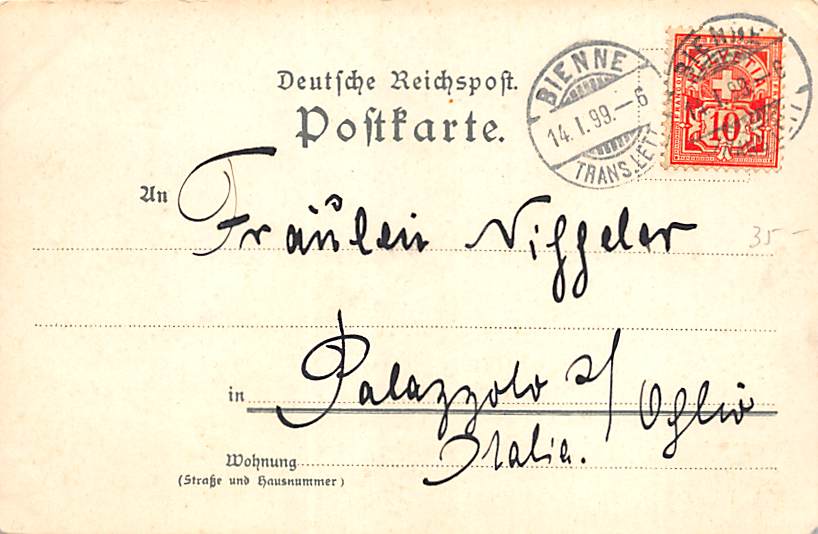 Deutsche Reichspost.
Postkarte.
BIENNE
14.I.99.-6
TRANS.LETT
BIENNE
HELVETIA
10
An Fräulein Niggeler
35-
in Palazzolo s/ Oglio
Italia.
Wohnung
(Straße und Hausnummer)